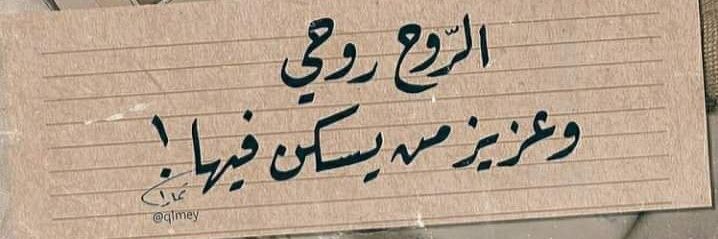 الرّوح روحي
وعزيز من يسكن فيها !
@qlmey